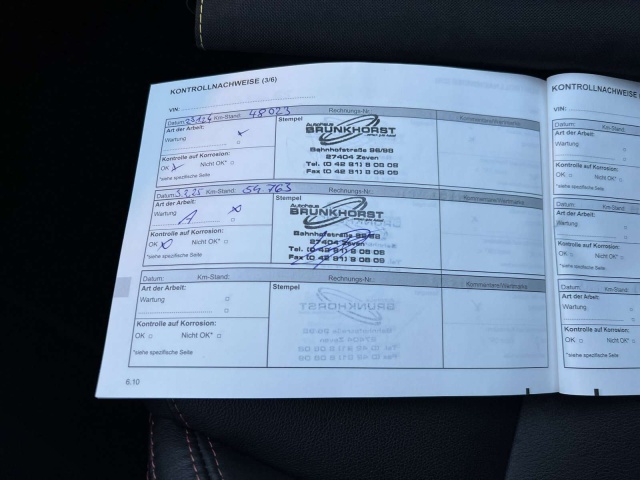 KONTROLLNACHWEISE (3/6)
VIN:
Datum: 23.1.24 Km-Stand: 48023 Rechnungs-Nr.:
Art der Arbeit:
Wartung
Kontrolle auf Korrosion:
OK Nicht OK*
*siehe spezifische Seite
Stempel
Autohaus
BRUNKHORST
Bahnhofstraße 96/98
27404 Zeven
Tel. (0 42 81) 9 08 08
Fax (0 42 81) 9 08 09
Kommentare/Werkmarke
Datum: 3.2.25 Km-Stand: 54.763 Rechnungs-Nr.:
Art der Arbeit:
Wartung
A
Kontrolle auf Korrosion:
OK Nicht OK*
*siehe spezifische Seite
Stempel
Autohaus
BRUNKHORST
Bahnhofstraße 96/98
27404 Zeven
Tel. (0 42 81) 9 08 08
Fax (0 42 81) 9 08 09
Datum: Km-Stand: Rechnungs-Nr.:
Art der Arbeit:
Wartung
Kontrolle auf Korrosion:
OK Nicht OK*
*siehe spezifische Seite
Stempel
6.10
KONTROLLNACHWEISE
VIN:
Datum: Km-Stand:
Art der Arbeit:
Wartung
Kontrolle auf Korrosion:
OK Nicht OK*
*siehe spezifische Seite
Datum: Km-Stand:
Art der Arbeit:
Wartung
Kontrolle auf Korrosion:
OK Nicht OK*
*siehe spezifische Seite
Datum: Km-Stand:
Art der Arbeit:
Wartung
Kontrolle auf Korrosion:
OK Nicht OK*
*siehe spezifische Seite